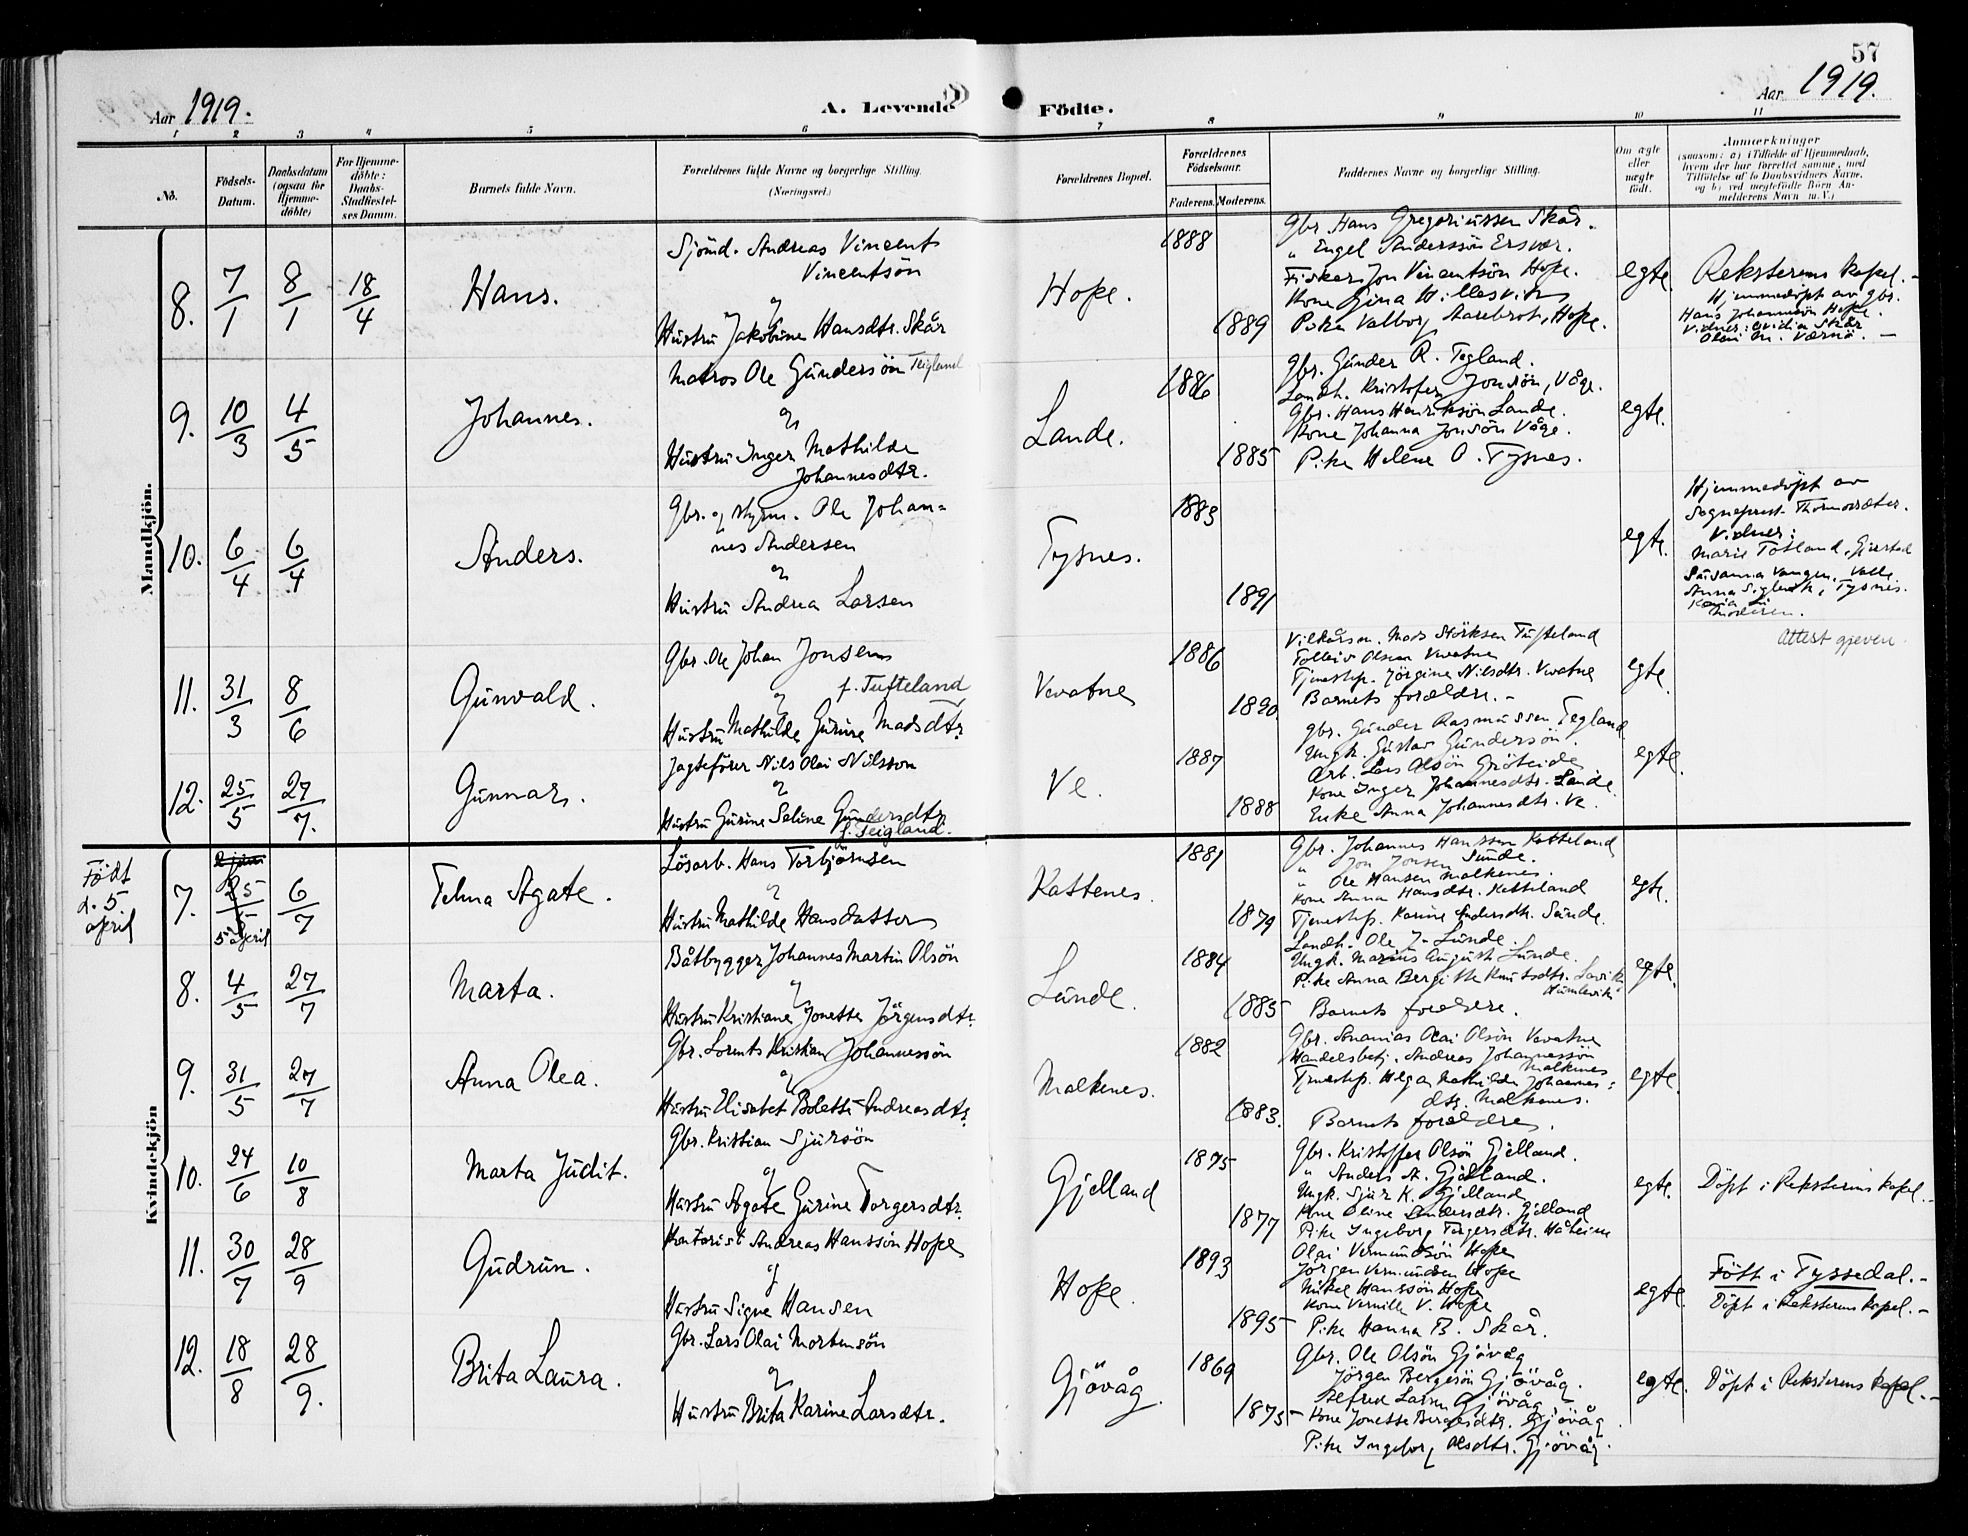 57
Aar 1919.
A. Levende Födte.
Aar 1919.
1 2 3 4 5 6 7 8 9 10 11
No.
Födsels-Datum.
Daabsdatum (ogsaa for Hjemme-döbte)
For Hjemme-döbte: Daabs-Stadfæstel-ses Datum.
Barnets fulde Navn.
Forældrenes fulde Navne og borgerlige Stilling.
(Næringsvei.)
Forældrenes Bopæl.
Forældrenes Födselsaar.
Faderens. Moderens.
Faddernes Navne og borgerlige Stilling.
Om ægte eller uægte födt.
Anmærkninger
(saasom: a) i Tilfælde af Hjemmedaab,
hvem der har forrettet samme, med
Tilföielse af to Daabsvidners Navne,
og b) ved uægtefödte Börn An-
melderens Navn m. V.)
Mandkjön.
8. 7/1 8/1 18/4 Hans.
Sjömd. Andreas Vincents
Vincentsön
og
Hustru Jakobine Hansdtr. Skår
Hope.
1888
1889
Gbr. Hans Gregoriussen Skår.
" Engel Anderssön Ersvær.
Fisker Jon Vincentsön Hope.
Kone Gina Hillesvik
Pike Valborg Aarebrot, Hope.
egte.
Reksterens kapel. -
Hjemmedöpt av gbr.
Hans Johannesön Hope.
Vidner: Skår
Olai M. Værnö. -
9. 10/3 4/5 Johannes.
Matros Ole Gundersön Teigland
og
Hustru Inger Mathilde
Johannesdtr.
Lande.
1886
1885
Gbr. Gunder R. Tegland.
Landh. Kristofer Jonsön, Våge.
Gbr. Hans Henriksön Lande.
Kone Johanna Jonsön Våge.
Pike Helene O. Tysnes.
egte.
10. 6/4 6/4 Anders.
Gbr. og styrm. Ole Johan=
nes Andersen
og
Hustru Andrea Larsen
Tysnes.
1883
1891
egte.
Hjemmedöpt av
Sogneprest Thormodsæter.
Vidner:
Marie Totland, Gjerstad
Susanna Vangen, Valle
Anna Tysnes.
Moderen.
Attest gjeven.
11. 31/3 8/6 Gunvald.
Gbr. Ole Johan Jonsen
f. Tufteland
og
Hustru Mathilde Gurine Madsdtr.
Vevatne
1886
1890.
Vilkårsm. Mads Störksen Tufteland
Tolleiv Olsen Vevatne
Tjenestep. Jörgine Nilsdtr. Vevatne
Barnets forældre. -
egte.
12. 25/5 27/7. Gunnar.
Jagtefører Nils Olai Nilsson
og
Hustru Gurine Seline Gundersdtr
f. Teigland.
Ve.
1887
1888
Gbr. Gunder Rasmussen Tegland
Ungk. Gustav Gundersön.
Arb. Lars Olsön Gröteide
Kone Inger Johannesdtr. Lande.
Enke Anna Johannesdtr. Ve.
egte.
Kvindekjön
Födt
d. 5
april
7. 25/5 5 april 6/7 Telma Agate.
Lösarb. Hans Torbjörnsen
og
Hustru Mathilde Hansdatter
Kattenes.
1881
1879
Gbr. Johannes Hanssen Ketteland
" Jon Jonsen Sunde.
" Ole Hansen Malkenes.
Kone Anna Hansdtr. Ketteland
Tjenestep. Karine Andersdtr. Sunde.
egte.
8. 4/5 27/7 Marta.
Båtbygger Johannes Martin Olsön
og
Hustru Kristiane Jonette Jörgensdtr.
Sunde.
1884
1885
Landh. Ole J. Sunde.
Ungk. Marius August Sunde.
Pike Anna Bergitte Knutsdtr. Lavik
Humlevik
Barnets forældre.
egte.
9. 31/5 27/7 Anna Olea.
Gbr. Lorents Kristian Johannessön
og
Hustru Elisabet Bolette Andreasdtr.
Malkenes.
1882
1883.
Gbr. Ananias Olai Olsön Vevatne
Handelsbetj. Andreas Johannessön
Malkenes
Tjenestep. Helga Mathilde Johannes=
dtr. Malkenes.
Barnets forældre.
egte.
10. 24/6 10/8 Marta Judit.
Gbr. Kristian Sjursön
og
Hustru Agate Gurine Torgersdtr.
Gjelland
1875
1877
Gbr. Kristoffer Olsön Gjelland.
" Anders A. Gjelland.
Ungk. Sjur K. Gjelland
Kone Oline Andersdtr. Gjelland
Pike Ingeborg Torgersdtr. Håheim
egte.
Döpt i Reksterens kapel. -
11. 30/7 28/9 Gudrun.
Kontorist Andreas Hanssön Hope
og
Hustru Signe Hansen
Hope.
1893
1895
Olai Vermundsön Hope
Jörgen Vermundsen Hope
Mikel Hanssön Hope
Kone Vernille V. Hope
Pike Hanna B. Skår.
egte.
Födt i Tyssedal. -
Döpt i Reksterens kapel. -
12. 18/8 28/9. Brita Laura.
Gbr. Lars Olai Mortensön
og
Hustru Brita Karine Larsdtr.
Gjövåg
1869
1875
Gbr. Ole Olsön Gjövåg
Jörgen Bergesön Gjövåg.
Alfred Larsen Gjövåg
Kone Jonette Bergesdtr. Gjövåg
Pike Ingeborg Olsdtr. Gjövåg.
egte.
Döpt i Reksterens kapel. -